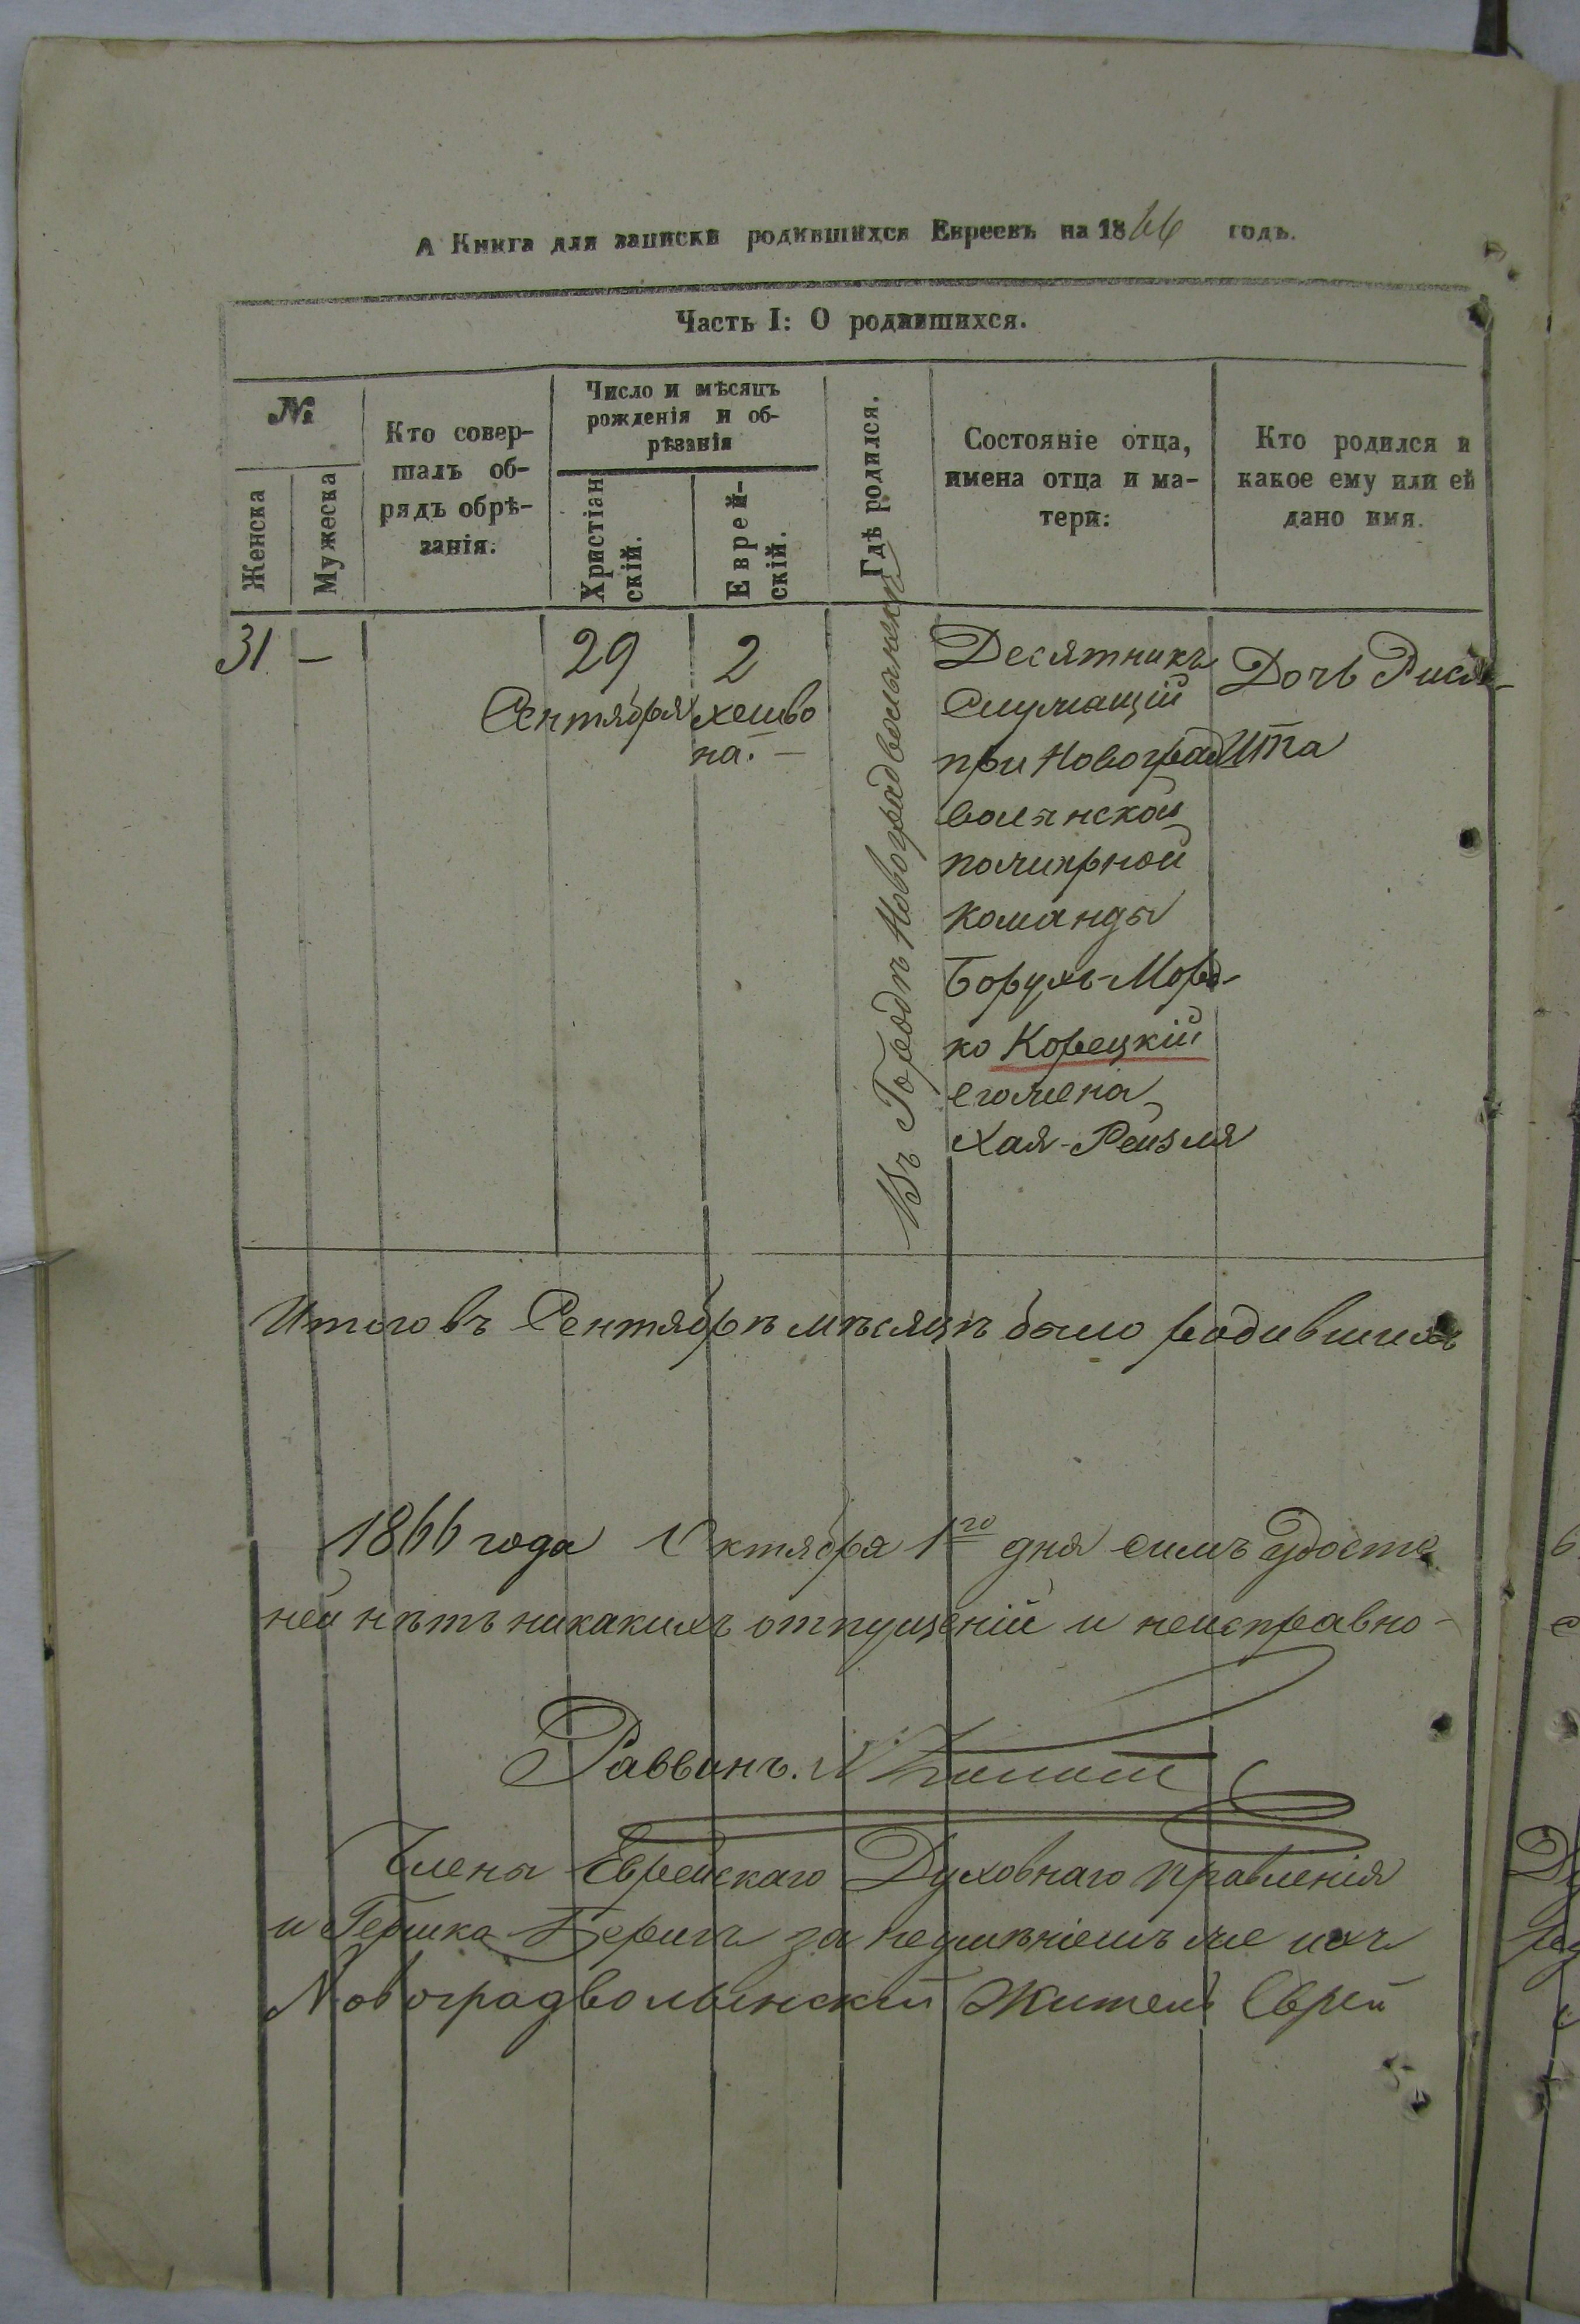 А Книга для записки родившихся Евреевъ на 1866 годъ.
Часть I: О родившихся.
№
Женска
Мужеска
Кто совер-
шалъ об-
рядъ обрѣ-
занія.
Число и мѣсяцъ
рожденія и об-
рѣзанія
Христіан
скій.
Еврей-
скій.
Гдѣ родился.
Состояніе отца,
имена отца и ма-
тери:
Кто родился и
какое ему или ей
дано имя.
31 —
29
Сентября
2
хешво
на. —
Въ Городѣ Новоградволынскѣ
Десятникъ
Служащій
при Новоград
волынской
пожарной
команды
Борухъ-Морд-
ко Корецкій
его жена
Хая-Рейзля
Дочь Рися-
Ита
Итого въ Сентябрѣ мѣсяцѣ было родившихъ
1866 года Октября 1го дня симъ удосто
ней нѣтъ никакихъ отпущеній и неисправно-
Раввинъ.
Члены Еврейскаго Духовнаго правленія
и Гершко Берихъ за неумѣніемъ же ихъ
Новоградволынскій Житель Еврей